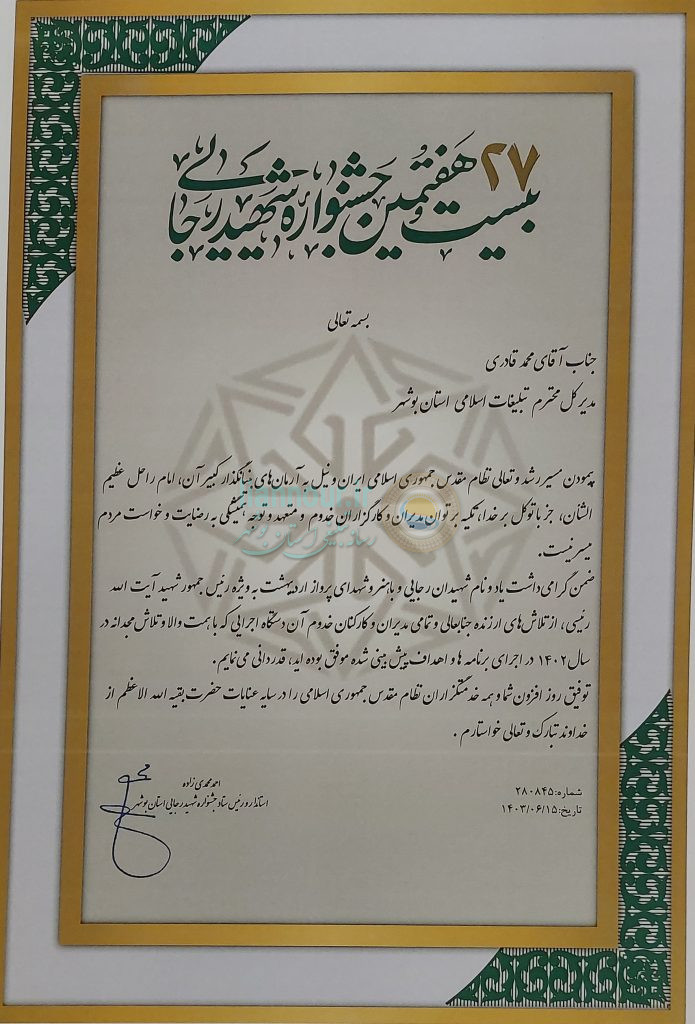 ۲۷
بیست و هفتمین جشنواره شهید رجایی
بسمه تعالی
جناب آقای محمد قادری
مدیرکل محترم تبلیغات اسلامی استان بوشهر
پیمودن مسیر رشد و تعالی نظام مقدس جمهوری اسلامی ایران و نیل به آرمان‌های بنیانگذار کبیر آن، امام راحل عظیم
الشأن، جز با توکل بر خدا، تکیه بر توان مدیران و کارگزاران خدوم و متعهد و توجه همیشگی به رضایت و خواست مردم
میسر نیست.
ضمن گرامی‌داشت یاد و نام شهیدان رجایی و باهنر و شهدای پرواز اردیبهشت به ویژه رئیس جمهور شهید آیت الله
رئیسی، از تلاش‌های ارزنده جنابعالی و تمامی مدیران و کارکنان خدوم آن دستگاه اجرایی که با همت والا و تلاش مجدانه در
سال ۱۴۰۲ در اجرای برنامه ها و اهداف پیش بینی شده موفق بوده اید، قدردانی می‌نمایم.
توفیق روز افزون شما و همه خدمتگزاران نظام مقدس جمهوری اسلامی را در سایه عنایات حضرت بقیه الله الاعظم از
خداوند تبارک و تعالی خواستارم.
شماره: ۲۸۰۸۴۵
تاریخ: ۱۴۰۳/۰۶/۱۵
احمد محمدی زاده
استاندار و رئیس ستاد جشنواره شهید رجایی استان بوشهر